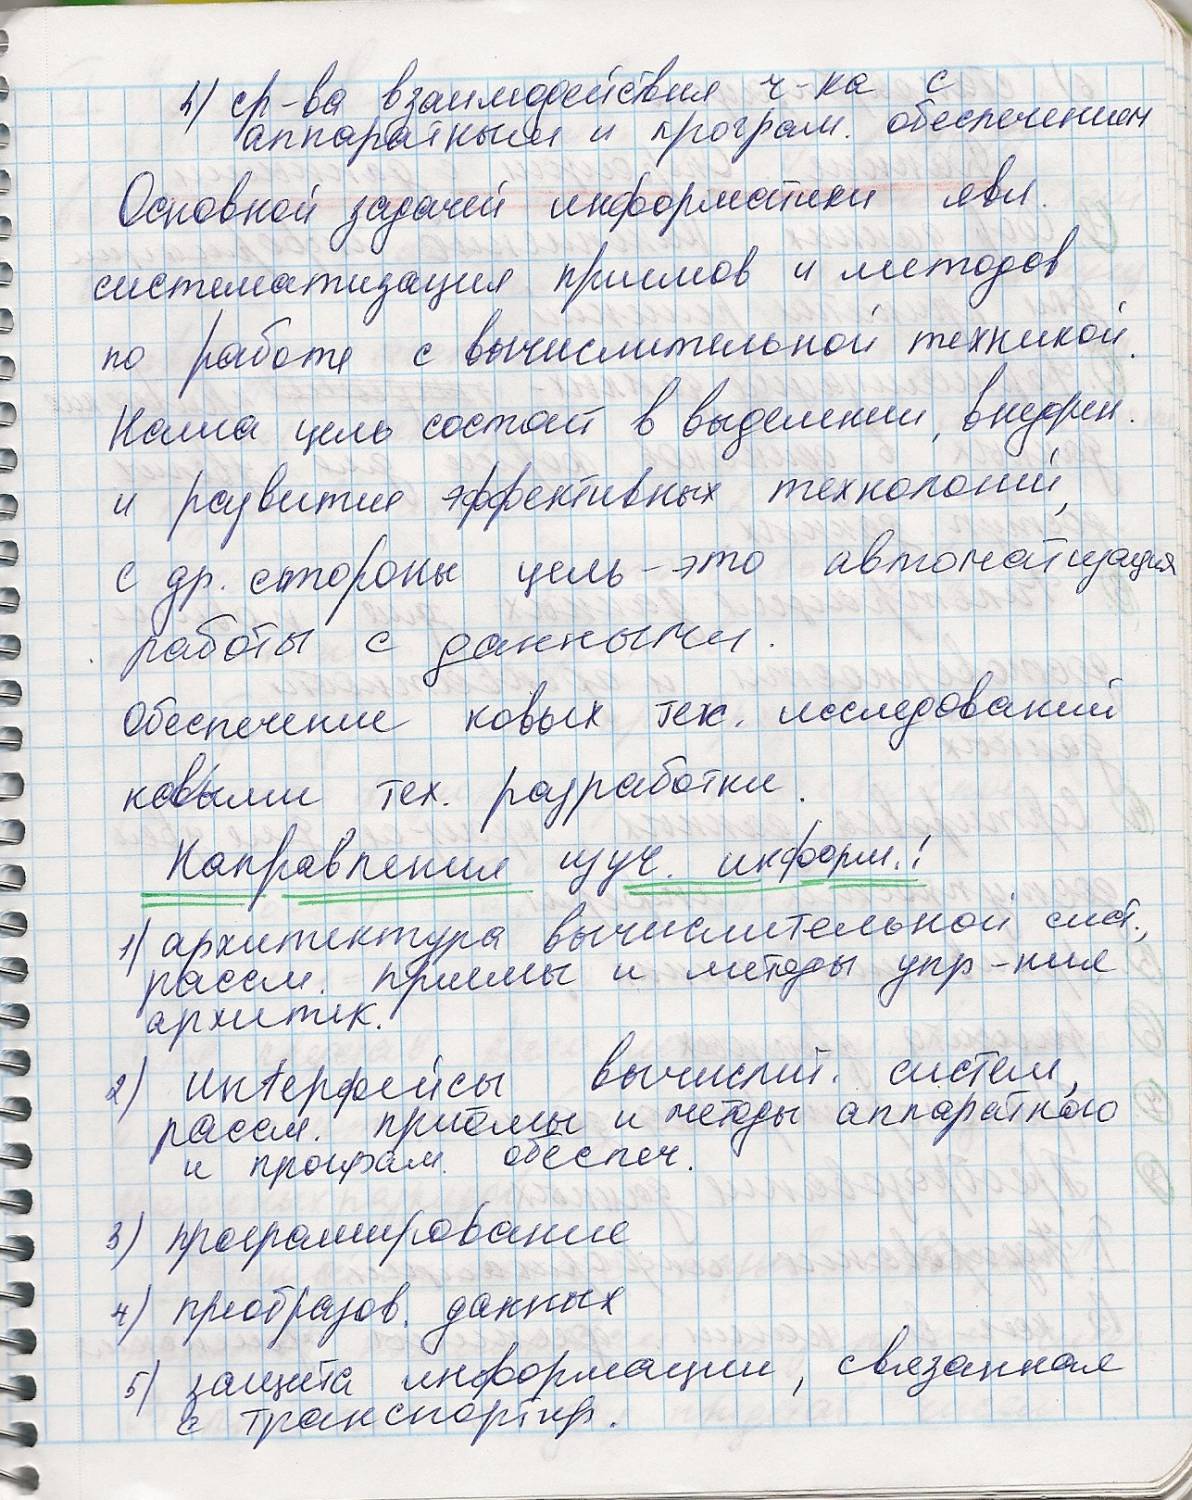 4) ср-ва взаимодействия ч-ка с
аппаратным и програм. обеспечением
Основной задачей информатики явл.
систематизация приемов и методов
по работе с вычислительной техникой.
цель состоит в выделении, внедрен.
и развитие эффективных технологий,
с др. стороны цель - это автоматизация
работы с данными.
Обеспечение новых тех. исследований
новыми тех. разработки.
Направления изуч. информ.:
1) архитектура вычислительной сист.,
рассм. приемы и методы упр-ния
архитек.
2) интерфейсы вычислит. систем,
рассм. приёмы и методы аппаратного
и програм. обеспеч.
3) программирование
4) преобразов. данных
5) защита информации, связанная
с транспортир.